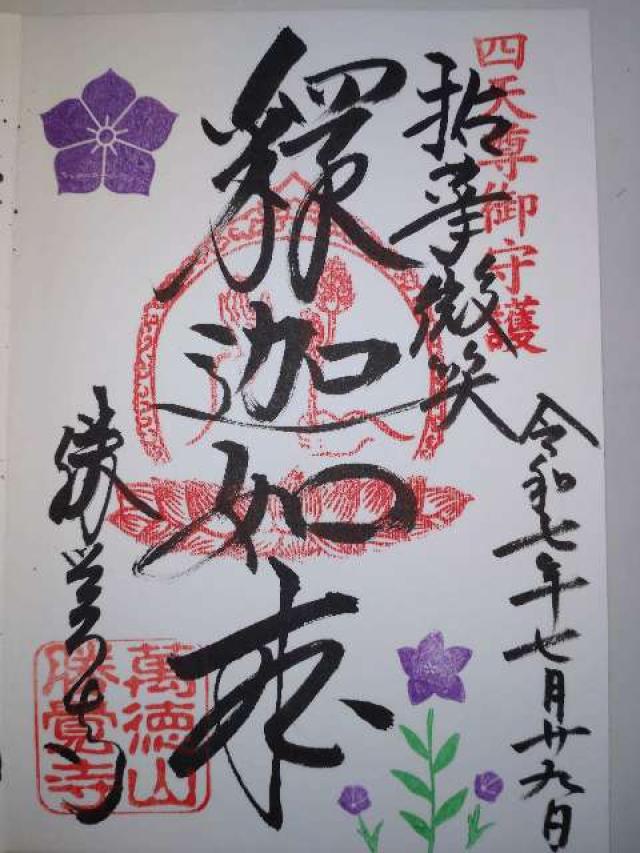 四天尊御守護
拈華微笑
令和七年七月廿九日
釋迦如来
勝覚寺
萬徳山
勝覺寺